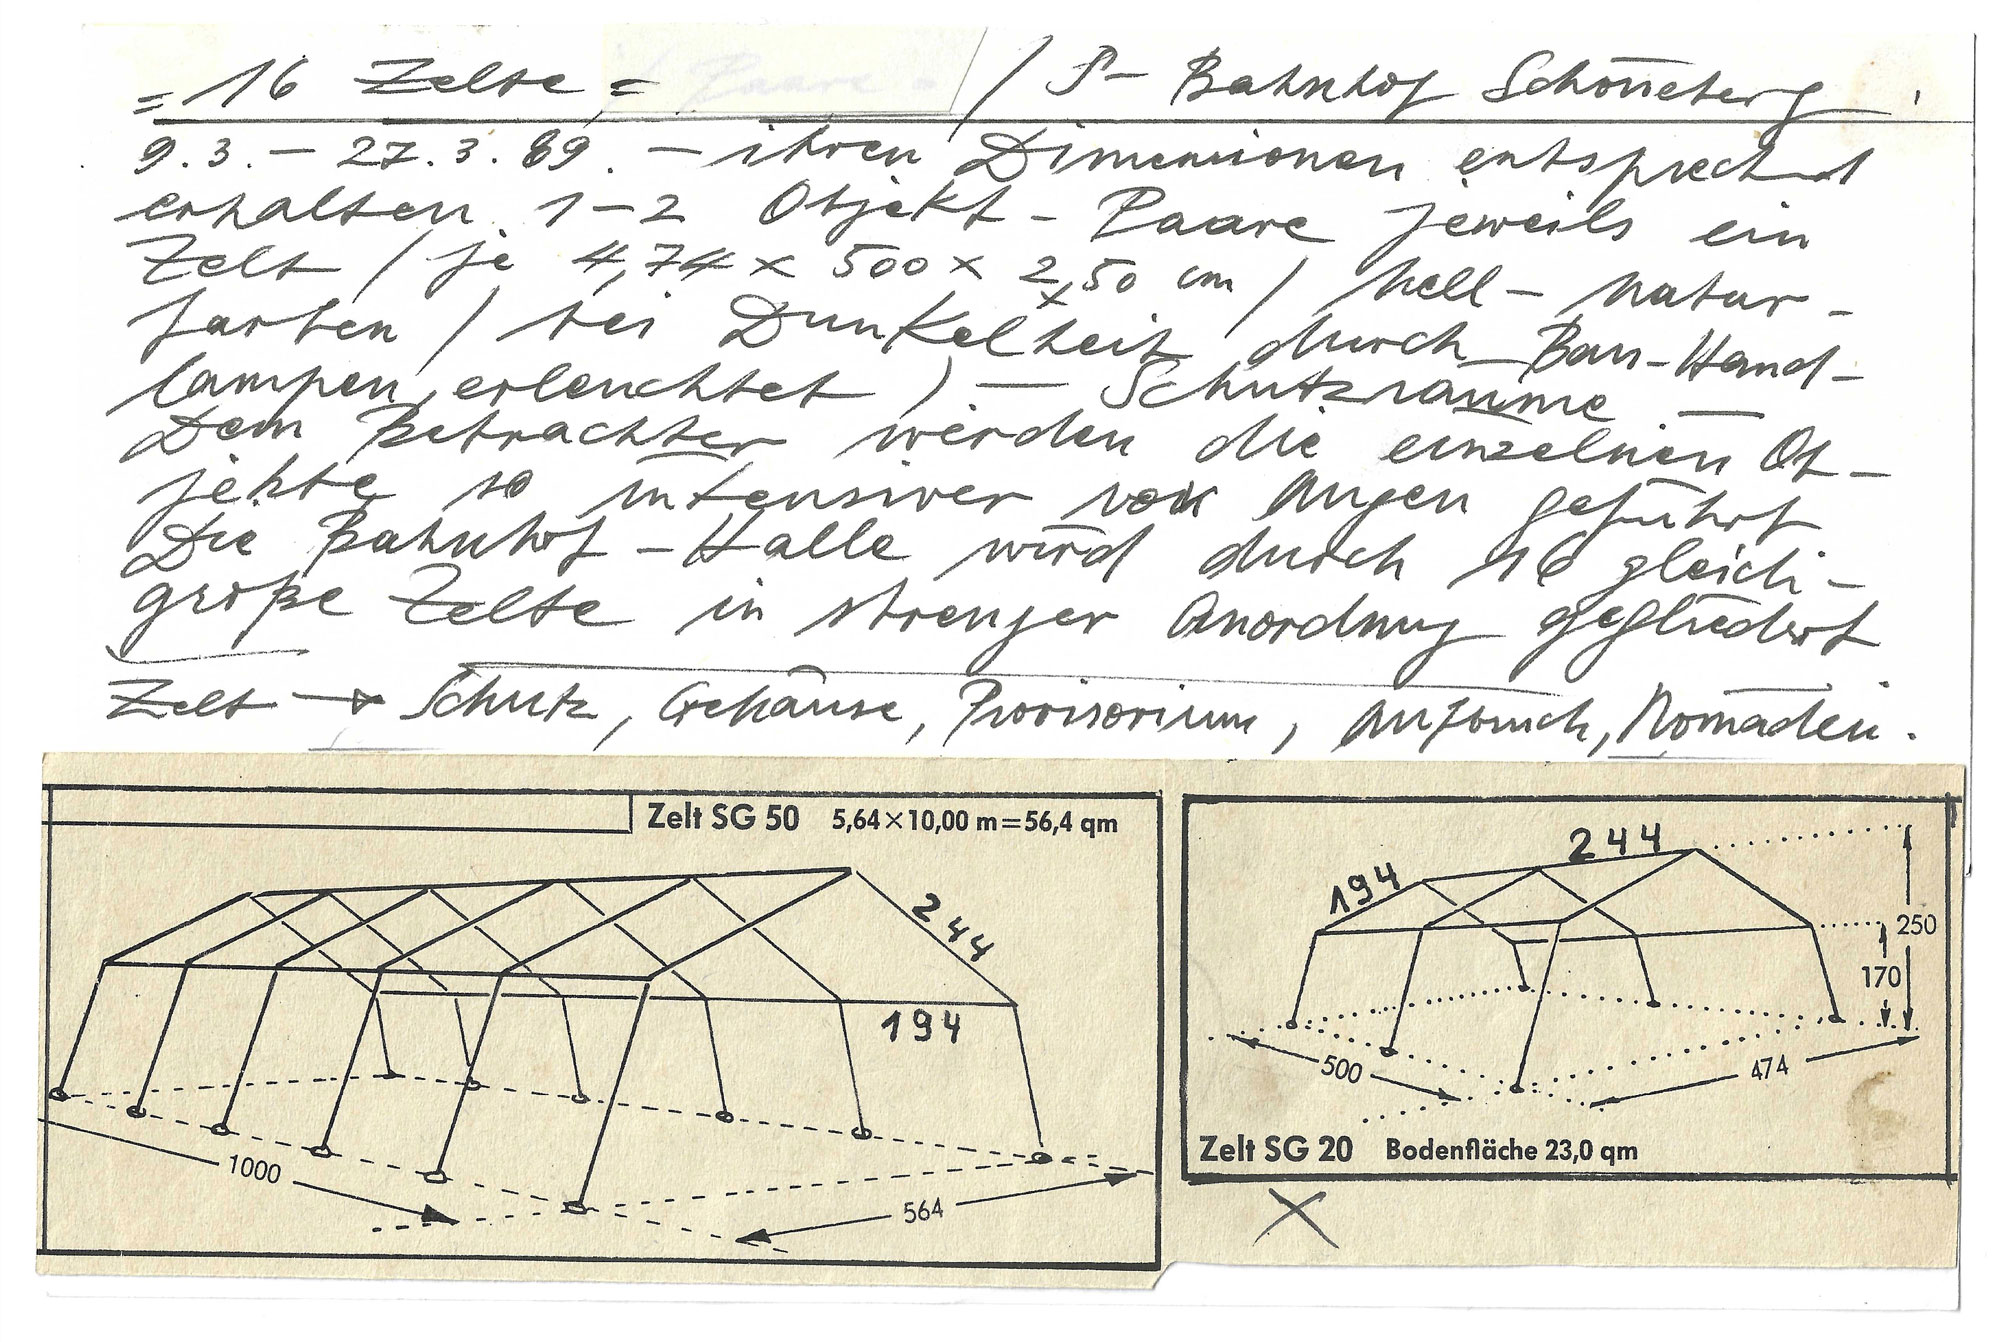 = 16 Zelte, = / S- Bahnhof Schöneberg
9.3. - 27.3.89. - ihren Dimensionen entsprechend
erhalten 1-2 Objekt- Paare jeweils ein
Zelt / je 4,74 x 500 x 2,50 cm / hell- natur-
farben / bei Dunkelheit durch Bau-Hand-
lampen erleuchtet ) — Schutzräume —
Dem Betrachter werden die einzelnen Ob-
jekte so intensiver vor Augen geführt
Die Bahnhof-Halle wird durch 16 gleich-
große Zelte in strenger Anordnung gegliedert
Zelt → Schutz, Gehäuse, Provisorium, Aufbruch, Nomaden.
Zelt SG 50 5,64×10,00 m=56,4 qm
244
194
1000
564
194
244
250
170
500
474
Zelt SG 20 Bodenfläche 23,0 qm
X